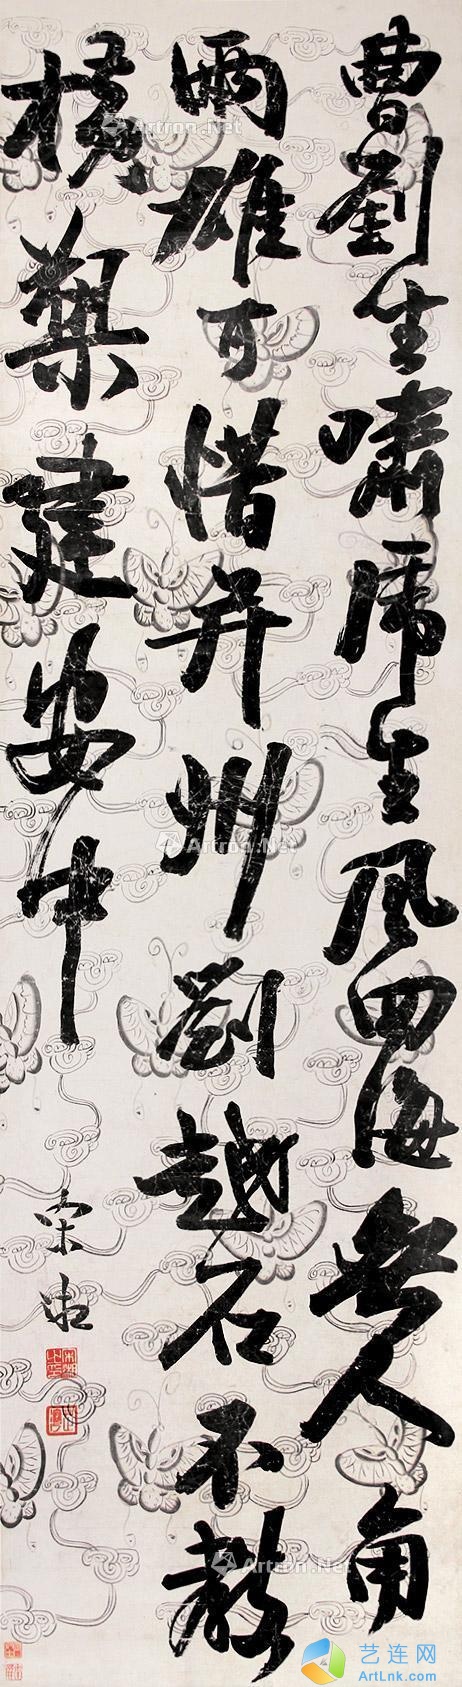 曹劉坐嘯虎生風四海無人角
兩雄可惜并州劉越石不教
橫槊建安中
宋湘
宋湘之印
Artron.Net
Artron.Net
Artron.Net
Artron.Net
Artron.Net
艺连网
ArtLnk.com